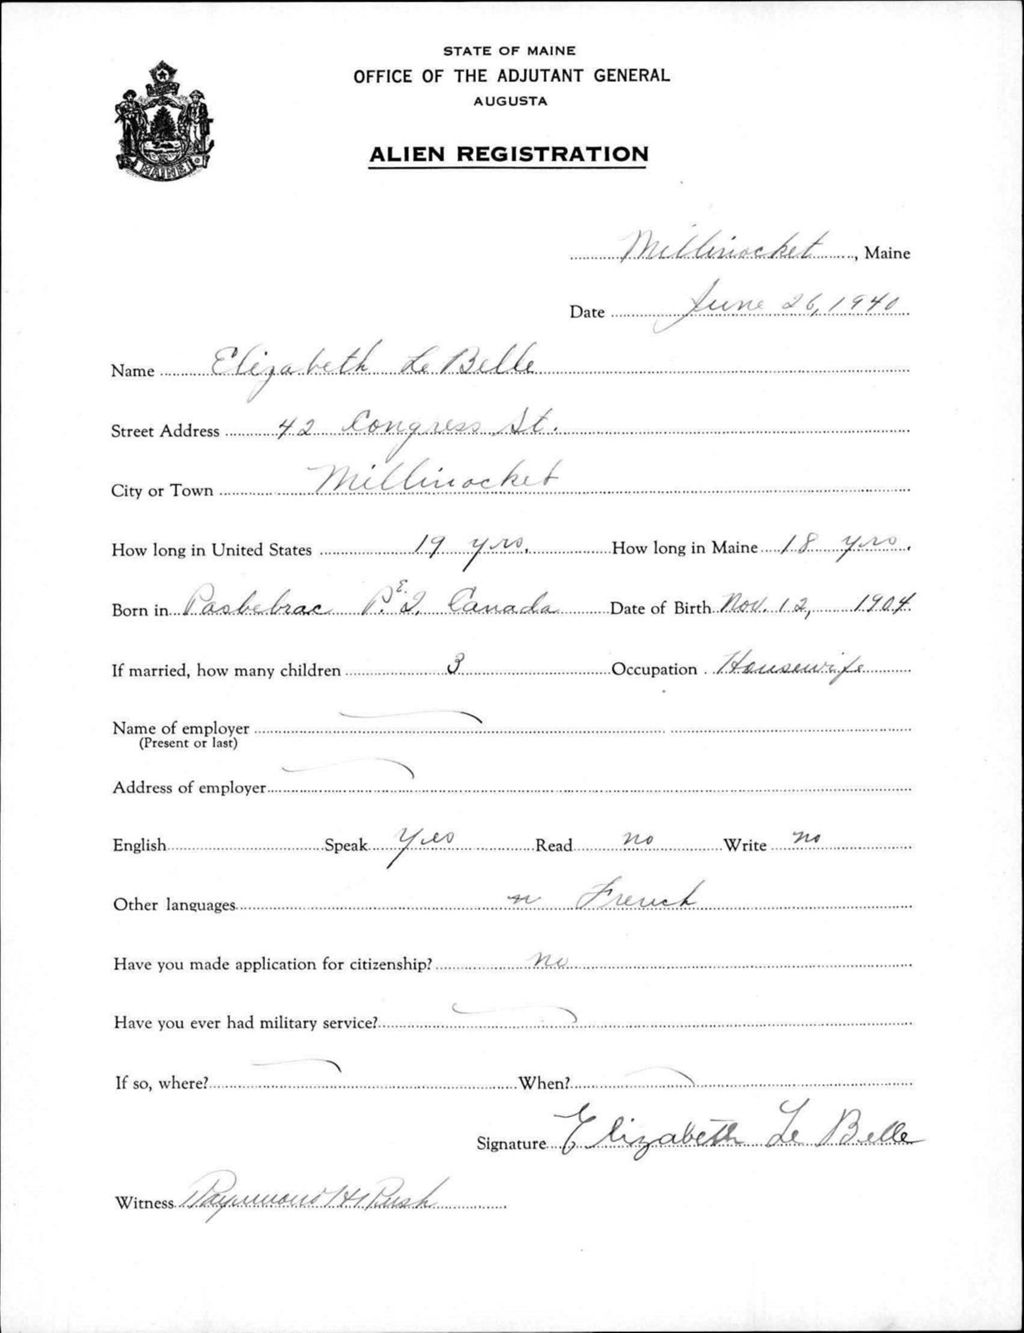 STATE OF MAINE
OFFICE OF THE ADJUTANT GENERAL
AUGUSTA
ALIEN REGISTRATION
MAINE
Millinocket, Maine
Date June 26, 1940
Name Elizabeth Le Belle
Street Address 42 Congress St.
City or Town Millinocket
How long in United States 19 yrs. How long in Maine 18 yrs.
Born in Pasbebrac P.E.I. Canada Date of Birth Nov. 12, 1904
If married, how many children 3 Occupation Housewife
Name of employer
(Present or last)
Address of employer
English Speak Yes Read no Write no
Other languages French
Have you made application for citizenship? no
Have you ever had military service?
If so, where? When?
Signature Elizabeth Le Belle
Witness Raymond H Rush